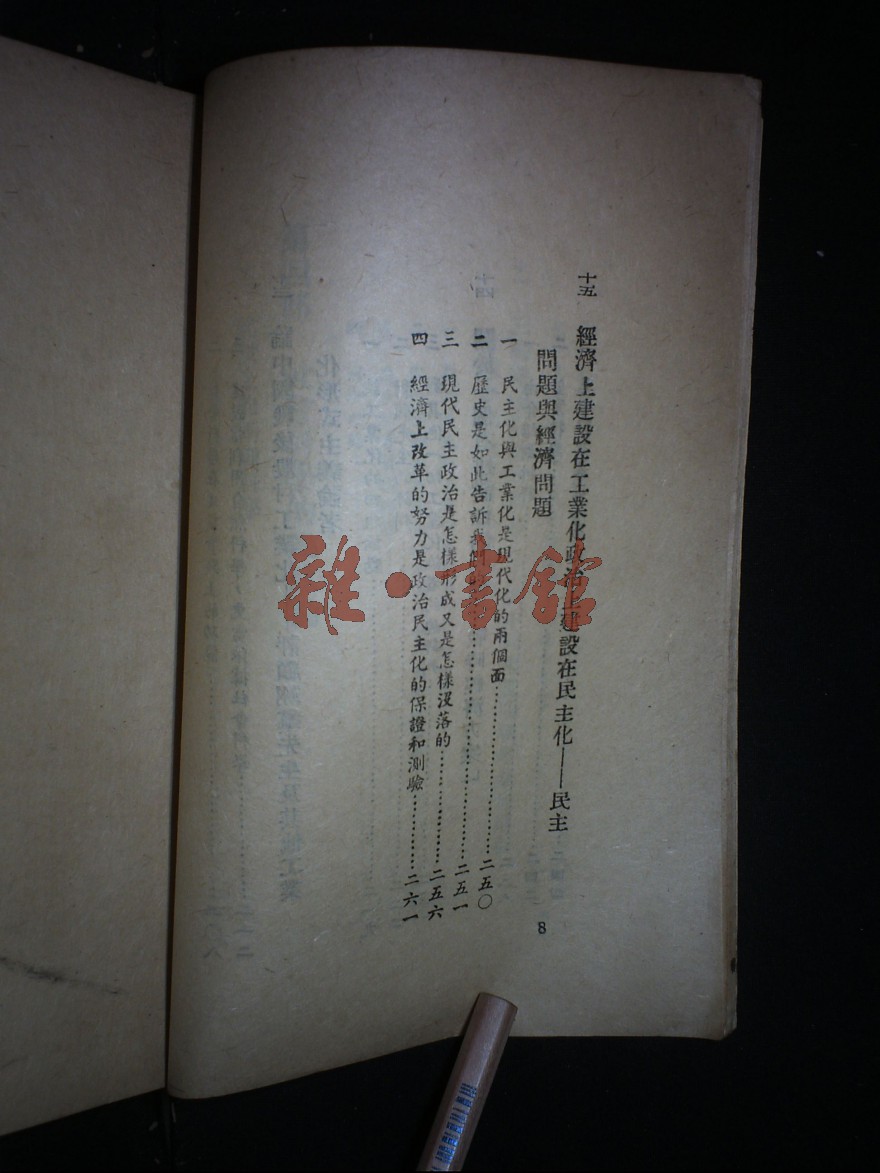 十五 經濟上建設在工業化政治上建設在民主化——民主
問題與經濟問題
一 民主化與工業化是現代化的兩個面……………二五〇
二 歷史是如此告訴我們……………二五一
三 現代民主政治是怎樣形成又是怎樣没落的……………二五六
四 經濟上改革的努力是政治民主化的保證和測驗……………二六一
8
雜·書館